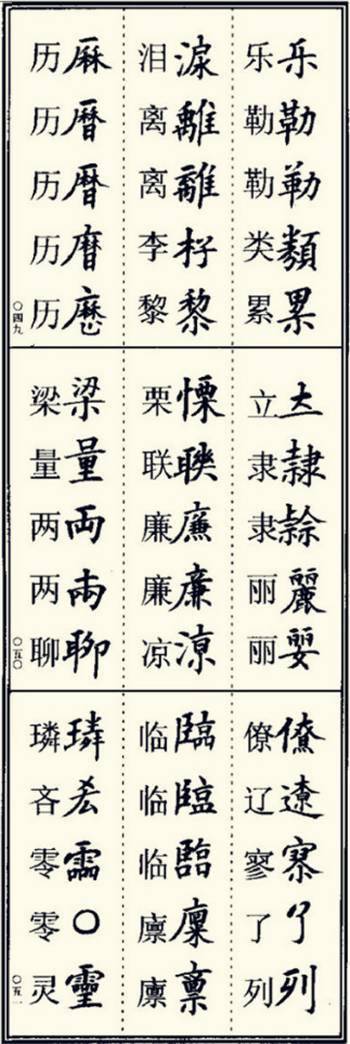 乐
勒勒
勒
类類
累累
泪淚
离離
离離
李杍
黎黎
历厤
历曆
历曆
历
历
〇四九
立
隶隷
隶
丽麗
丽
栗慄
联聨
廉
廉廉
凉涼
梁梁
量量
两両
两
聊聊
〇五〇
僚
辽遼
寥
了
列列
临臨
临臨
临臨
廪
廪禀
璘璘
吝
零
零〇
灵靈
〇五一